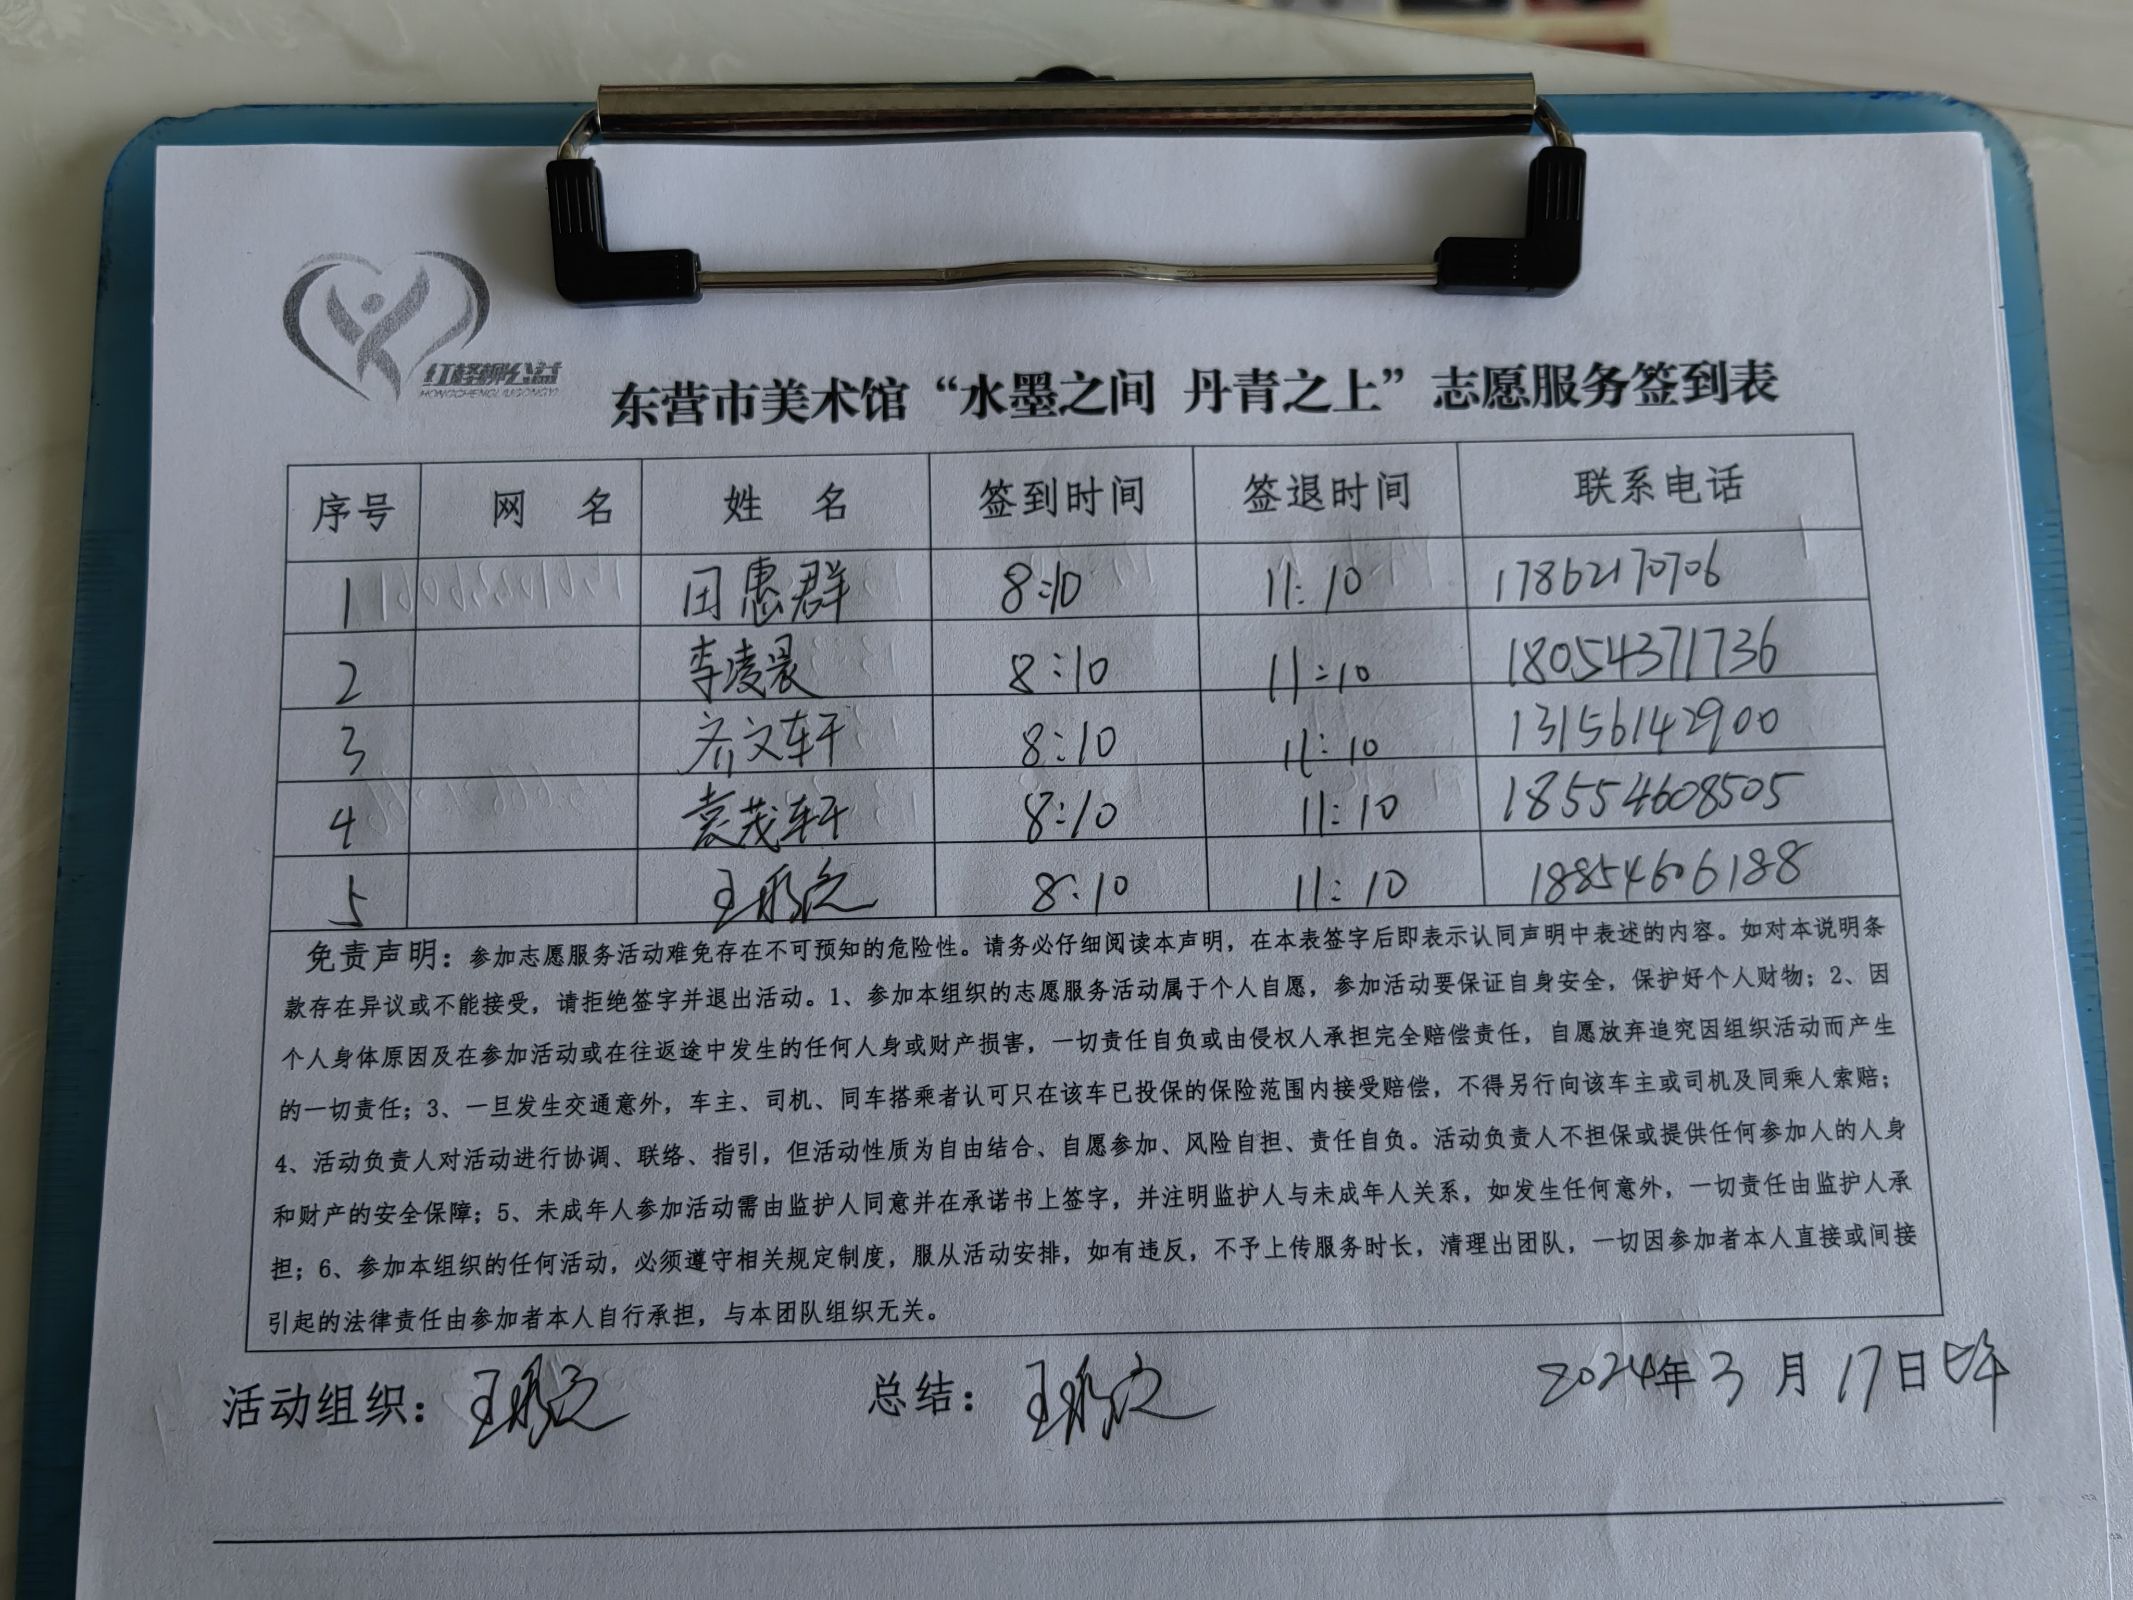 红柽柳公益
HONGCHENGLIUGONGYI
东营市美术馆“水墨之间 丹青之上”志愿服务签到表
序号 网 名 姓 名 签到时间 签退时间 联系电话
1 田惠群 8:10 11:10 17862170706
2 李凌晨 8:10 11:10 18054371736
3 齐文轩 8:10 11:10 13156142900
4 袁茂轩 8:10 11:10 18554608505
5 王 8:10 11:10 18854606188
免责声明：参加志愿服务活动难免存在不可预知的危险性。请务必仔细阅读本声明，在本表签字后即表示认同声明中表述的内容。如对本说明条
款存在异议或不能接受，请拒绝签字并退出活动。1、参加本组织的志愿服务活动属于个人自愿，参加活动要保证自身安全，保护好个人财物；2、因
个人身体原因及在参加活动或在往返途中发生的任何人身或财产损害，一切责任自负或由侵权人承担完全赔偿责任，自愿放弃追究因组织活动而产生
的一切责任；3、一旦发生交通意外，车主、司机、同车搭乘者认可只在该车已投保的保险范围内接受赔偿，不得另行向该车主或司机及同乘人索赔；
4、活动负责人对活动进行协调、联络、指引，但活动性质为自由结合、自愿参加、风险自担、责任自负。活动负责人不担保或提供任何参加人的人身
和财产的安全保障；5、未成年人参加活动需由监护人同意并在承诺书上签字，并注明监护人与未成年人关系，如发生任何意外，一切责任由监护人承
担；6、参加本组织的任何活动，必须遵守相关规定制度，服从活动安排，如有违反，不予上传服务时长，清理出团队，一切因参加者本人直接或间接
引起的法律责任由参加者本人自行承担，与本团队组织无关。
活动组织：王 总结：王 2024年3月17日